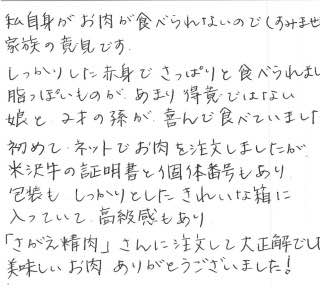 私自身がお肉が食べられないので(すみませ
家族の意見です.
しっかりした赤身でさっぱりと食べられまし
脂っぽいものが、あまり得意ではない
娘と2才の孫が、喜んで食べていまし
初めて、ネットでお肉を注文しましたが、
米沢牛の証明書と個体番号もあり
包装も しっかりとした きれいな箱に
入っていて、高級感もあり
「さがえ精肉」さんに注文して大正解でし
美味しいお肉 ありがとうございました!